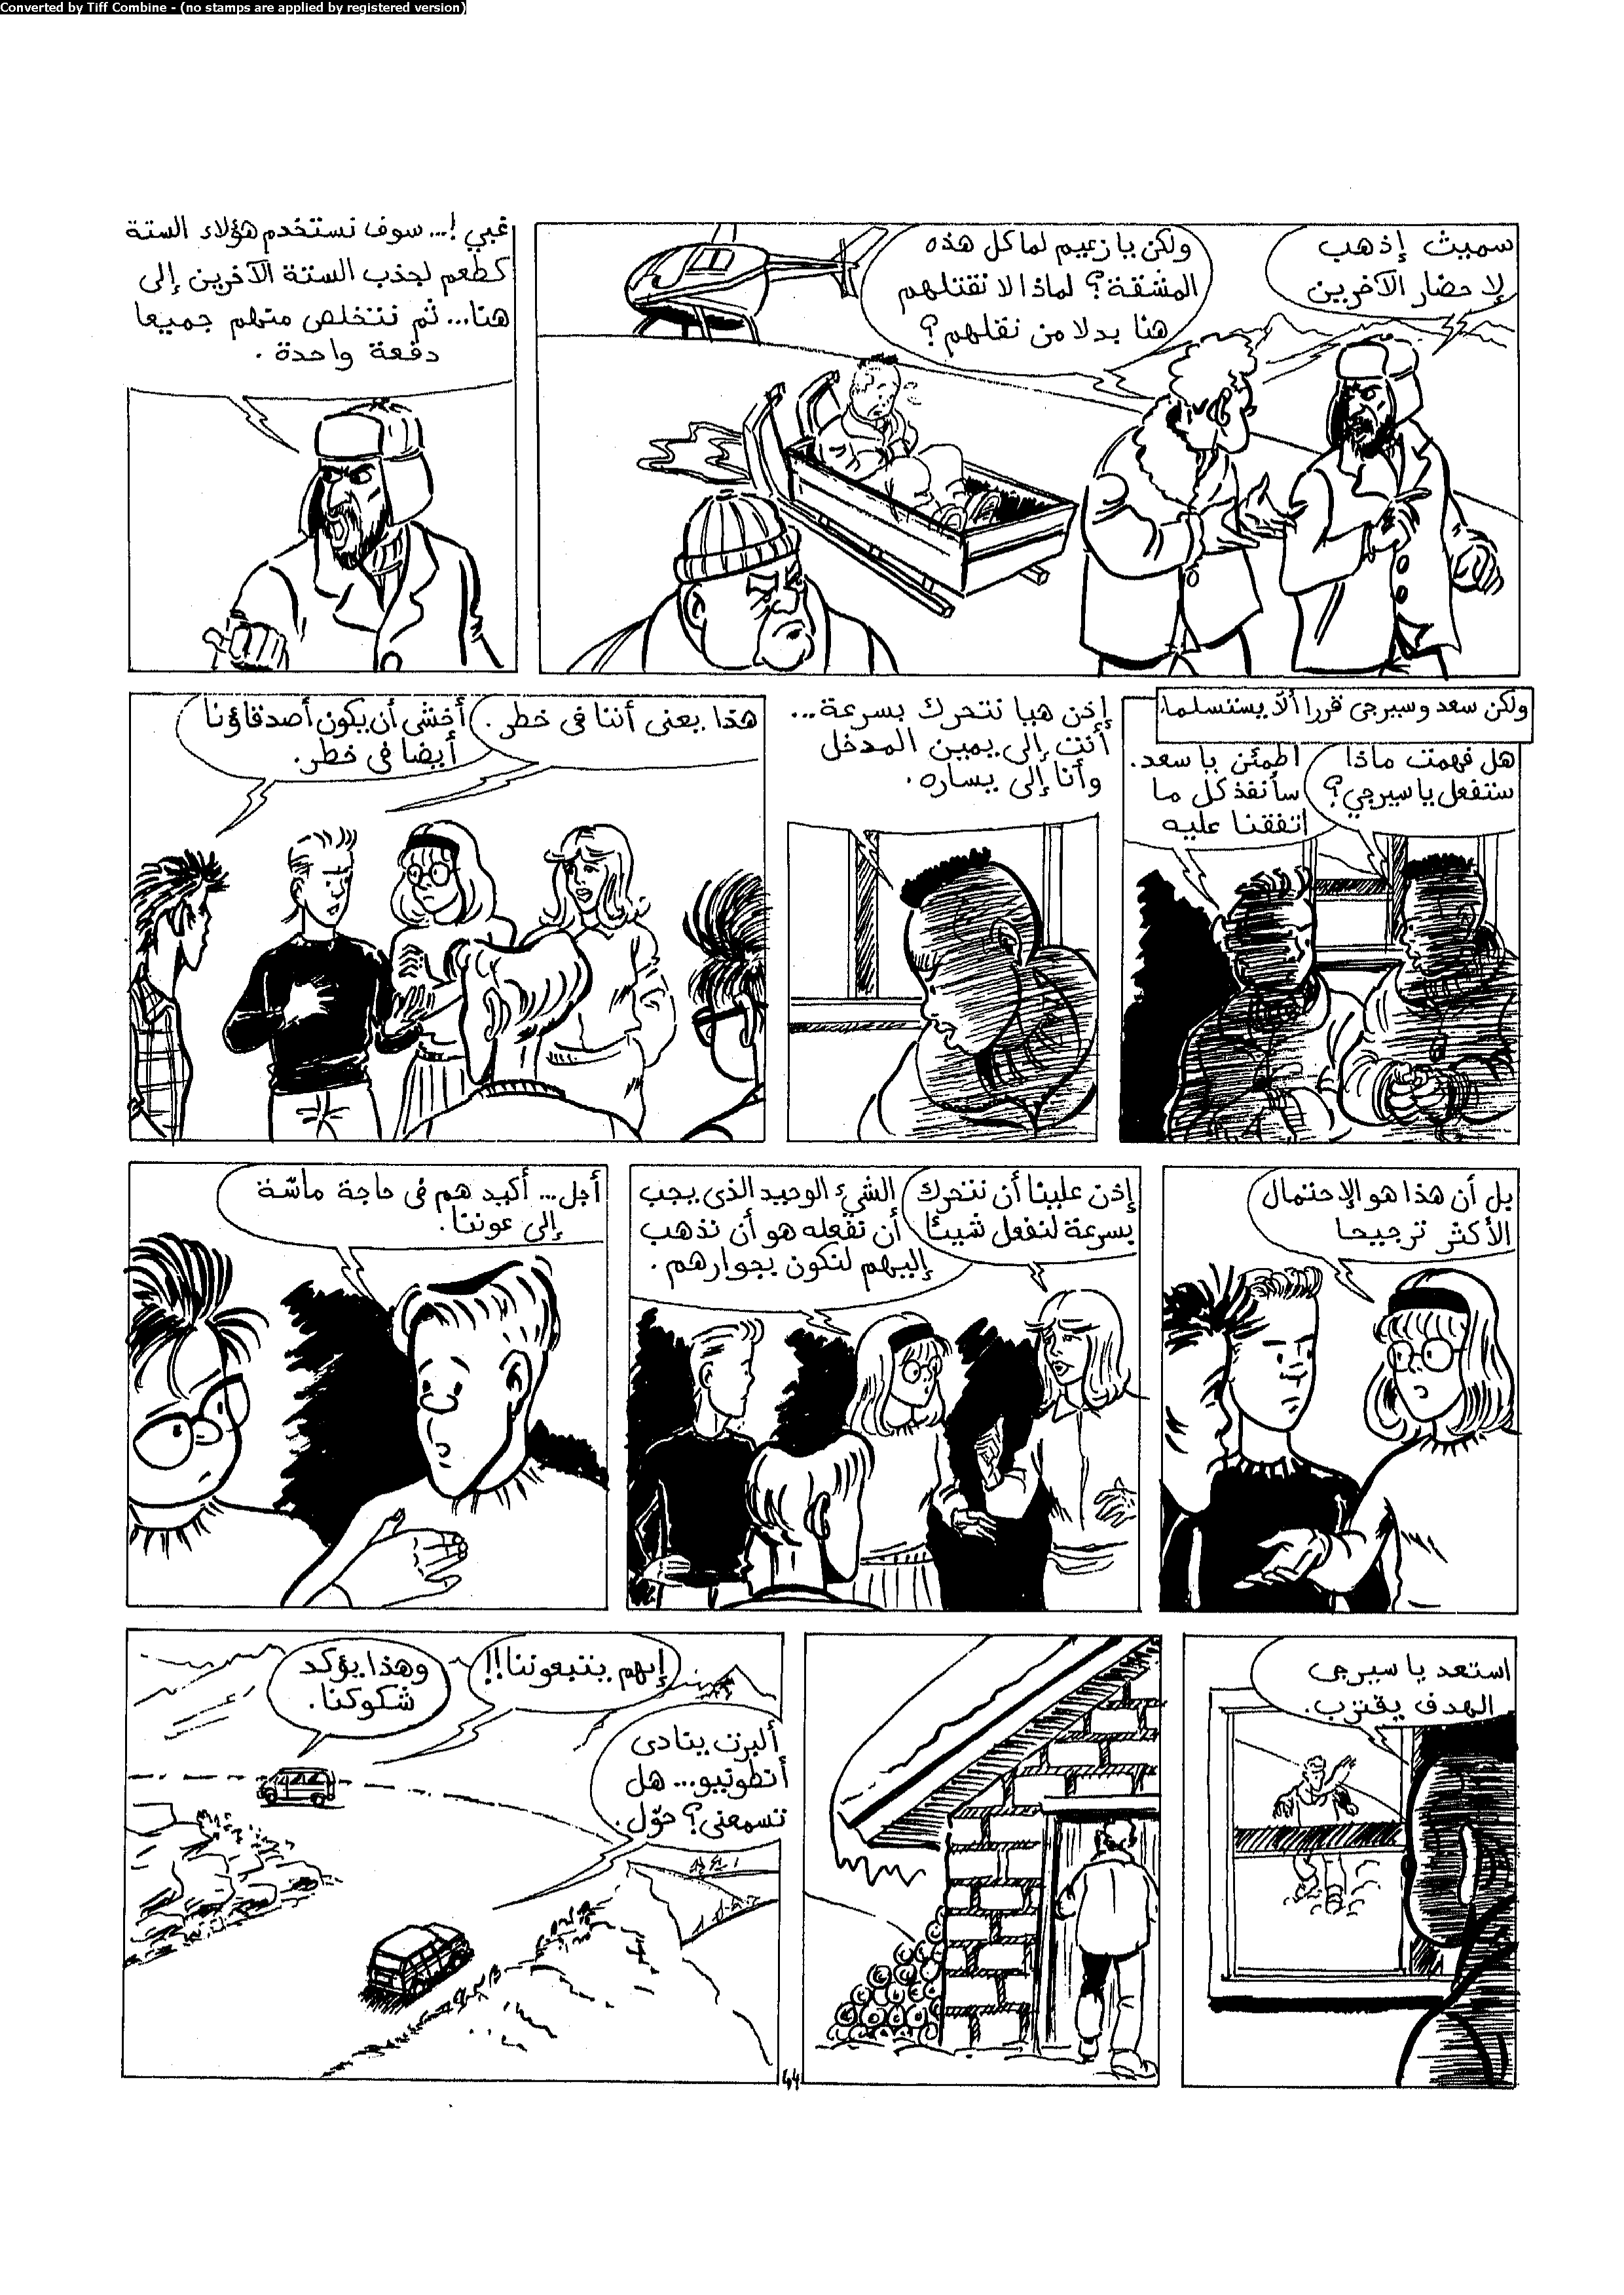 Converted by Tiff Combine - (no stamps are applied by registered version)
سميث إذهب
لإحضار الآخرين
ولكن يا زعيم لما كل هذه
المشقة؟ لماذا لا نقتلهم
هنا بدلا من نقلهم؟
غبي !... سوف نستخدم هؤلاء الستة
كطعم لجذب الستة الآخرين إلى
هنا... ثم نتخلص منهم جميعا
دفعة واحدة .
ولكن سعد وسيرجى قررا ألا يستسلما.
هل فهمت ماذا
ستفعل يا سيرجي؟
اطمئن يا سعد.
سأنفذ كل ما
اتفقنا عليه
إذن هيا نتحرك بسرعة...
أنت إلى يمين المدخل
وأنا إلى يساره .
هذا يعنى أننا فى خطر .
أخشى أن يكون أصدقاؤنا
أيضا فى خطر.
بل أن هذا هو الإحتمال
الأكثر ترجيحا
إذن علينا أن نتحرك
بسرعة لنفعل شيئا
الشيء الوحيد الذى يجب
أن نفعله هو أن نذهب
إليهم لنكون بجوارهم .
أجل... أكيد هم فى حاجة ماسّة
إلى عوننا.
استعد يا سيرجى
الهدف يقترب.
إنهم يتبعوننا!!
وهذا يؤكد
شكوكنا.
ألبرت ينادى
أنطونيو... هل
تسمعنى؟ حوّل.
44